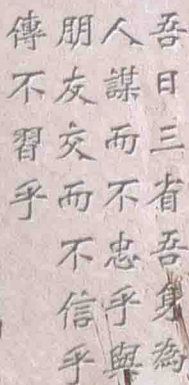 吾日三省吾身為
人謀而不忠乎與
朋友交而不信乎
傳不習乎